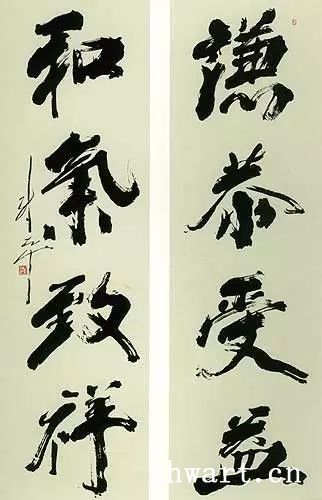 谦恭受益
和氣致祥
hwart.cn